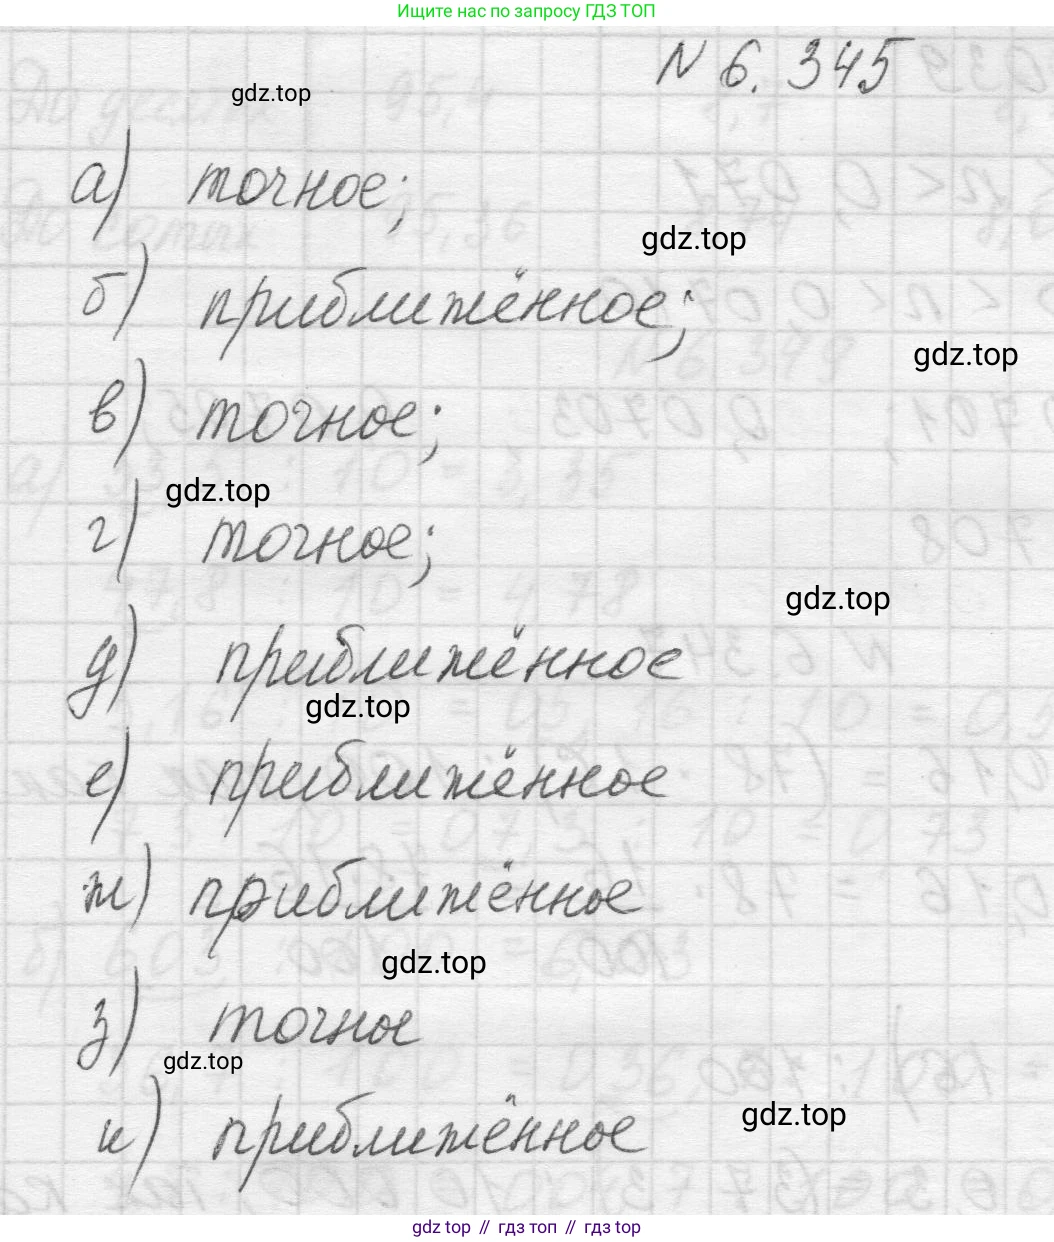 Ищите нас по запросу ГДЗ ТОП
№ 6.345
gdz.top
а) точное;
gdz.top
б) приближённое;
gdz.top
в) точное;
gdz.top
г) точное;
gdz.top
д) приближённое
gdz.top
е) приближённое
ж) приближённое
gdz.top
з) точное
gdz.top
и) приближённое
gdz.top
gdz top // гдз топ // гдз top